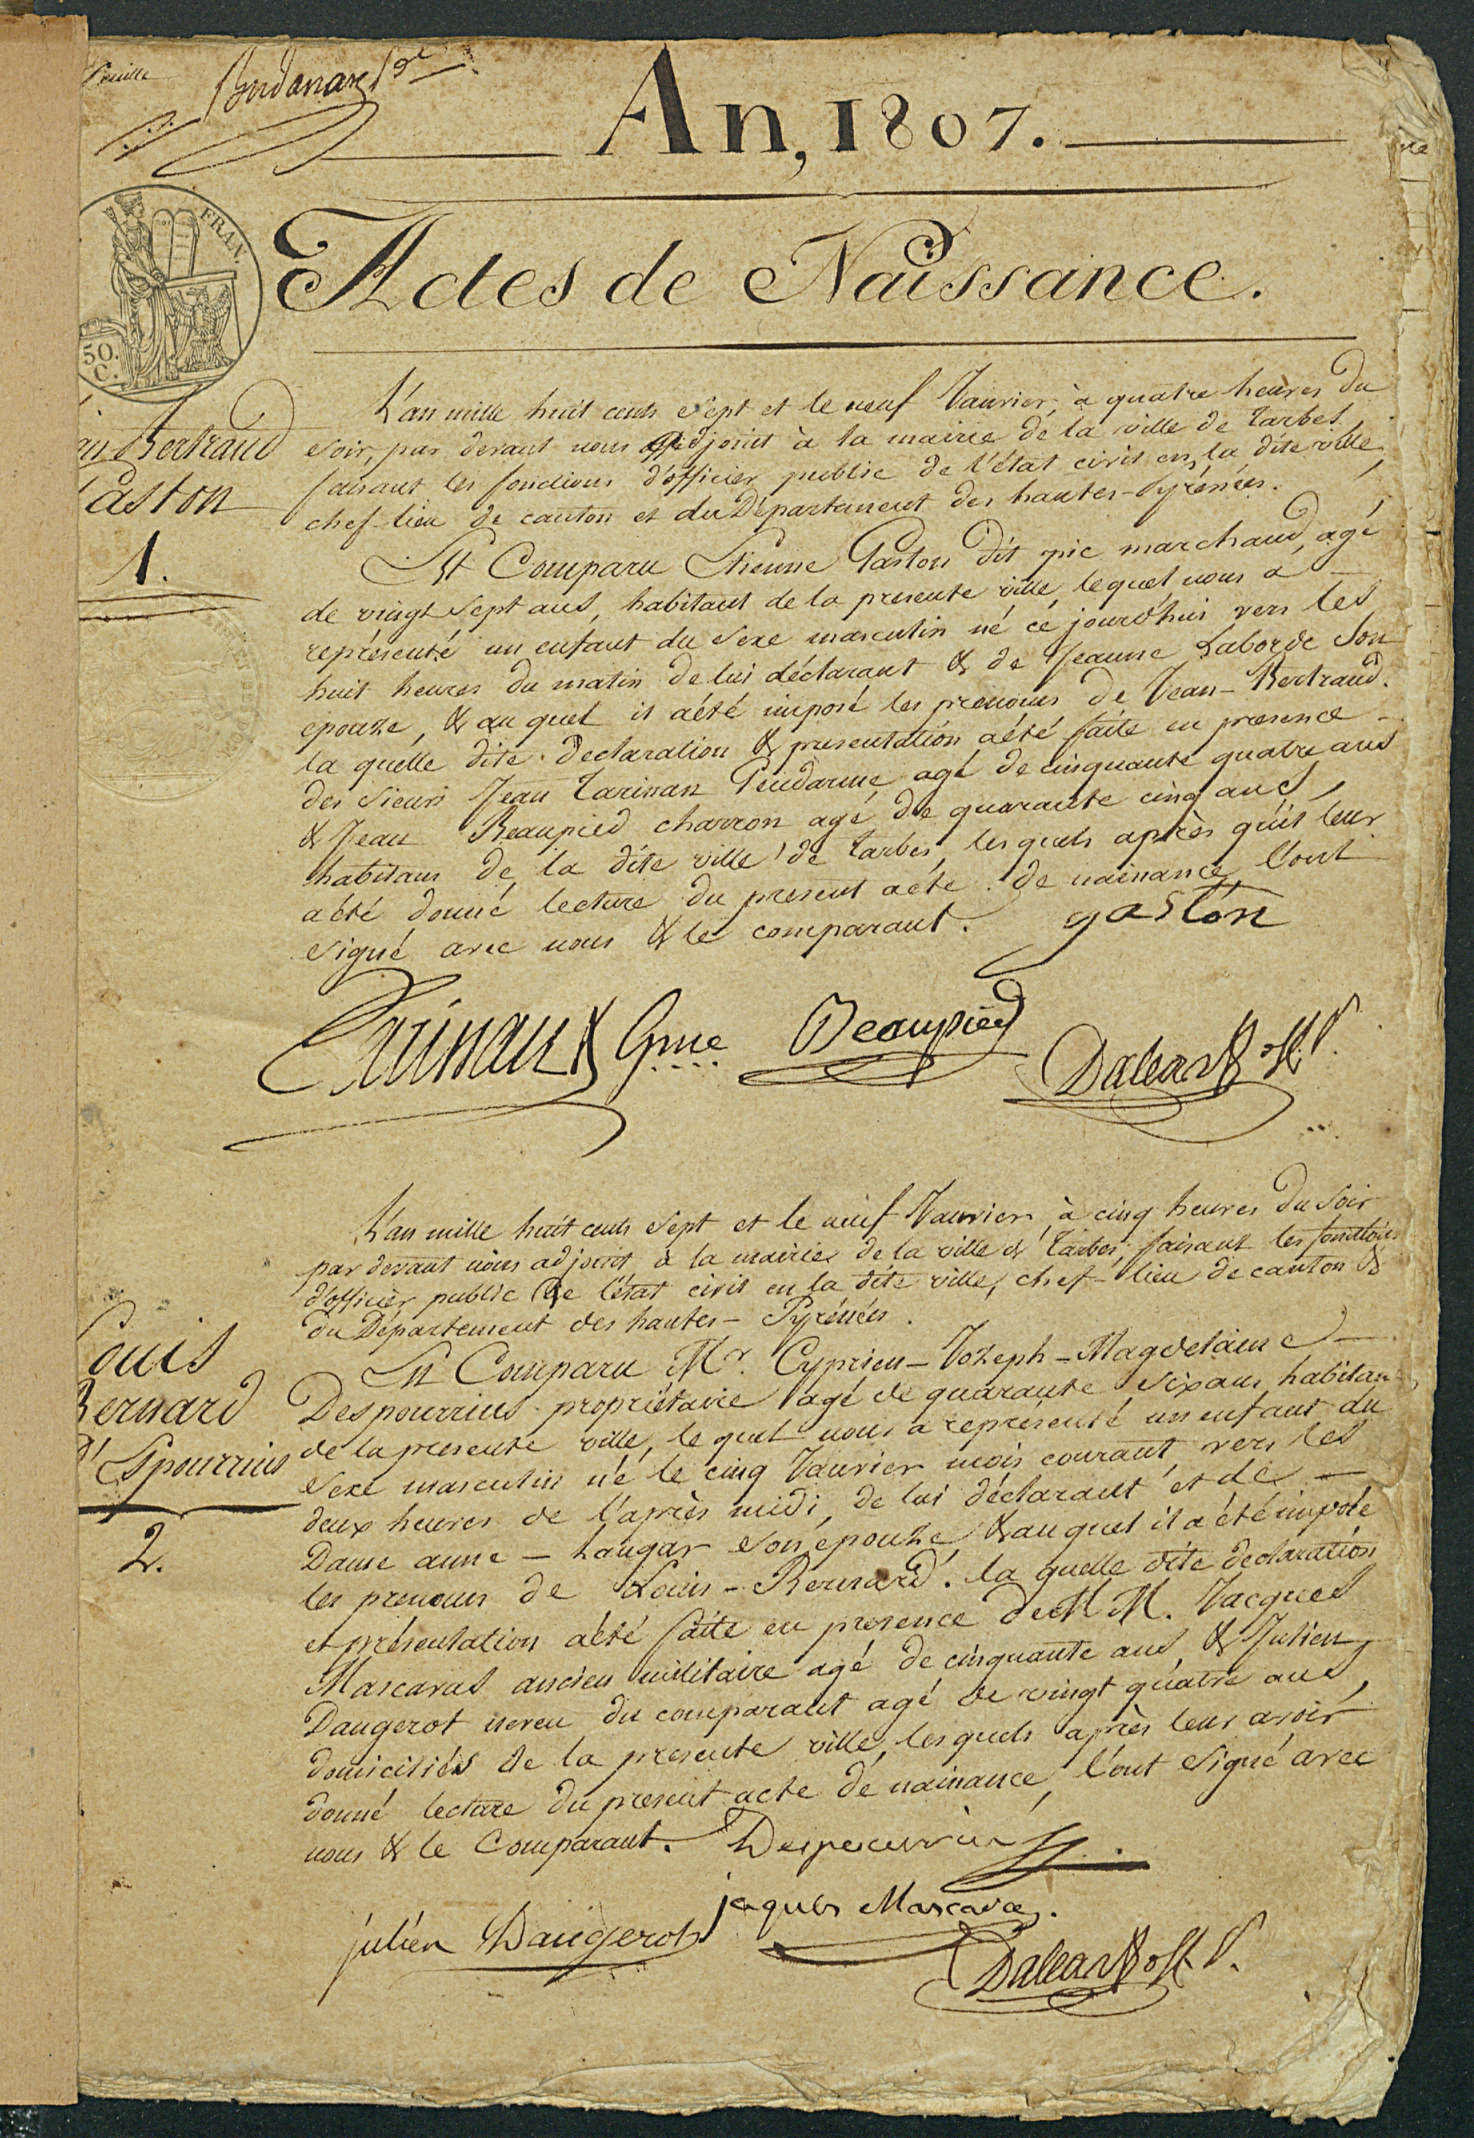 An, 1807.
FRAN.
50.
C.
Actes de Naissance.
Bertrand
Gaston
1.
L'an mille huit cents sept et le neuf Janvier, à quatre heures du
soir, par devant nous adjoint à la mairie de la ville de Tarbes
faisant les fonctions d'officier public de l'état civil en la dite ville
chef-lieu de canton et du Département des hautes-Pyrénées.
Est Comparu Etienne Gaston dit pic marchand, agé
de vingt sept ans, habitant de la presente ville, lequel nous a
représenté un enfant du sexe masculin né cé jourd'hui vers les
huit heures du matin de lui déclarant & de Jeanne Laborde son
epouze, & au quel il aété imposé les prenoms de Jean-Bertrand.
la quelle dite declaration & presentation aété faite en presence
des sieurs Jean Tarinan Gendarme agé de cinquante quatre ans
& Jean Beaupied charron agé de quarante cinq ans,
habitans de la dite ville de Tarbes, lesquels après qu'il leur
aété donné lecture du present acte de naissance l'ont
signé avec nous & le comparant. gaston
Tarinan Gme Beaupied
Daleas off. P.
L'an mille huit cents sept et le neuf Janvier à cinq heures du soir
par devant nous adjoint à la mairie de la ville de Tarbes, faisant les fonctions
d'officier public de l'état civil en la dite ville, chef-lieu de canton &
du Département des hautes-Pyrénées.
Louis
Bernard
D'Espourrins
2.
Est Comparu Mr. Cyprien-Jozeph-Magdelaine
Despourrins propriétaire agé de quarante six ans, habitan
de la presente ville, le quel nous a représenté un enfant du
sexe masculin né le cinq Janvier mois courant vers les
deux heures de l'après midi, de lui déclarant et de
Dame anne - Laugar son épouze, & au quel il a été imposé
les prenoms de Louis-Bernard. la quelle dite declaration
et présentation aété faite en presence de M M. Jacques
Mascaras ancien militaire agé de cinquante ans & Julien
Daugerot neveu du comparant agé de vingt quatre ans,
domiciliés de la presente ville, lesquels après leur avoir
donné lecture du present acte de naissance, l'ont signé avec
nous & le Comparant. Despourrins
jaques Mascaras.
julien Daugerot
Daleas off P.